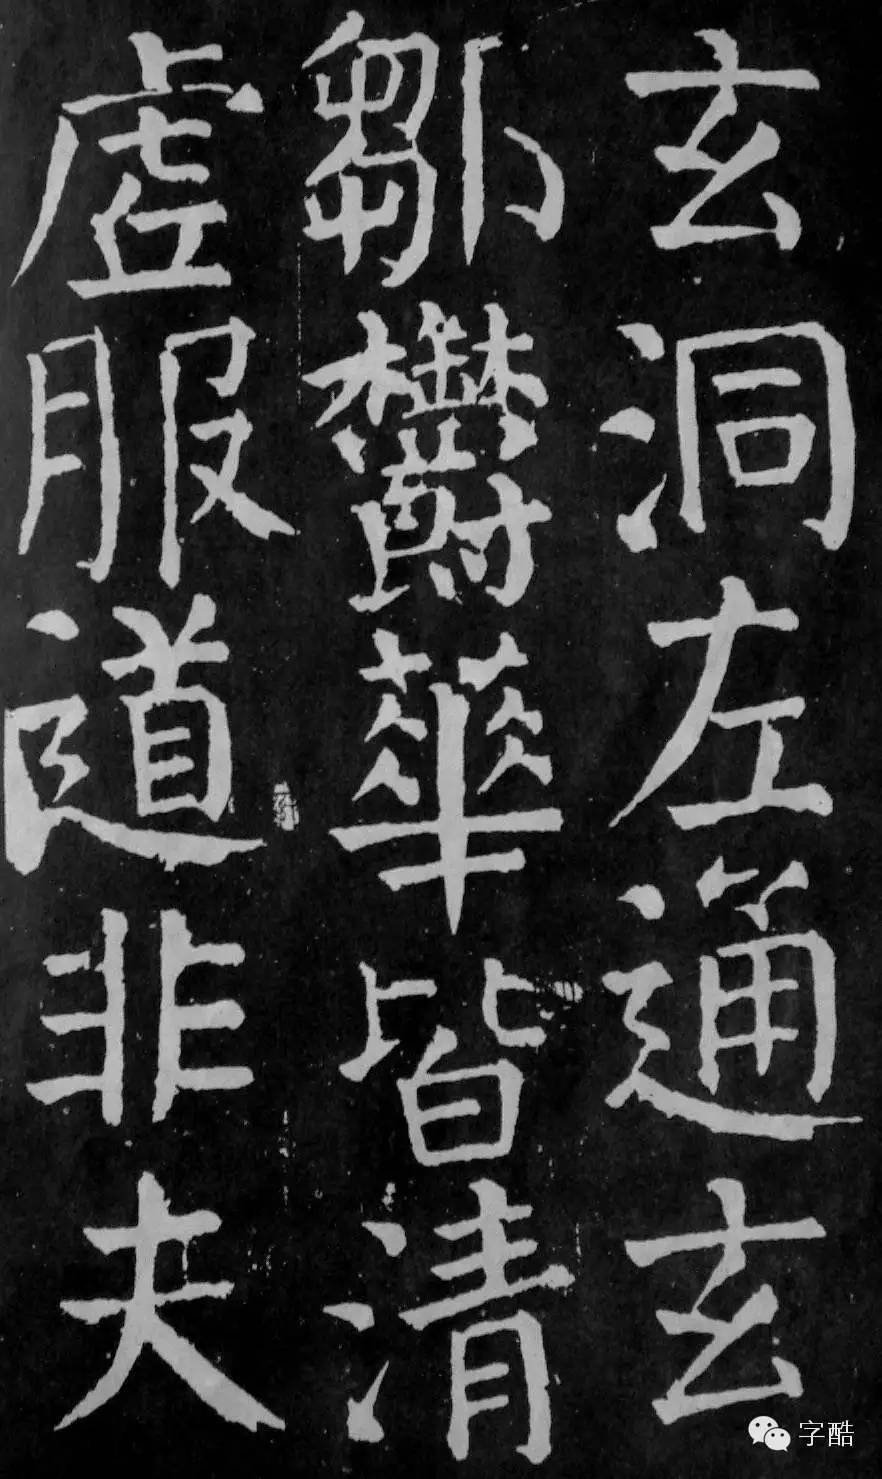 玄洞左通玄
鄒鬱華皆清
虛服道非夫
字酷